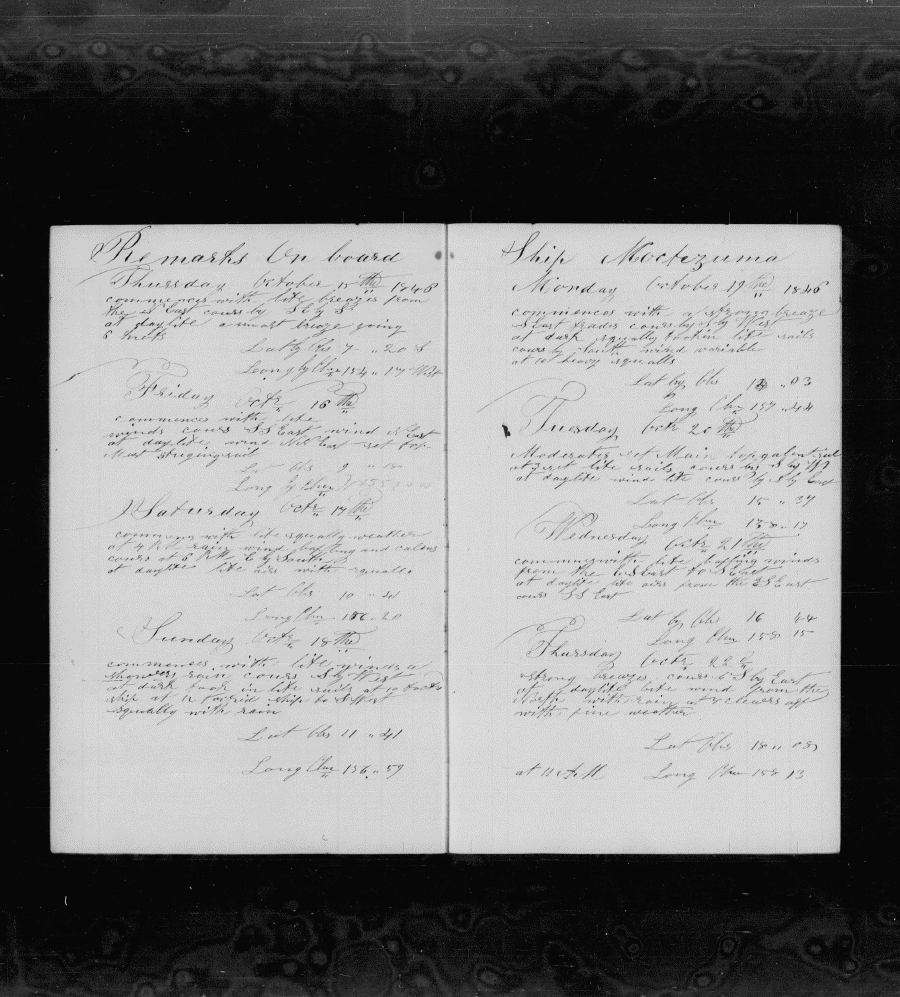 Remarks On board
Thursday October 15th 1846
commences with lite breazes from
the East cours by S by S
at daylite a smart breaze going
8 knots
Lat by Obs 7 " 20 S
Long by Chr 154 " 17 West
Friday Octr 16th
commences with lite
winds cours SSEast wind NEast
at daylite wind NEast set fore
Mast studingsail
Lat Obs 9 " 18
Long by Chr
Saturday Octr 17th
commenc with lite squally weather
at 4 PM rain wind baffling and calms
cours at 6 PM E by South
at daylite lite airs with squalls
Lat Obs 10 " 41
Long Chr 156 " 20
Sunday Octr 18th
commenses with lite winds a
showers rain cours S by West
at dark took in lite sails at 10
ship at 12 ship to SWest
squally with rain
Lat Obs 11 " 41
Long Chr 156 " 59
Ship Moctezuma
Monday October 19th 1846
commences with a strong breaze
SEast trades cours by S by West
at dark squally took in lite sails
cours by South wind variable
at 10 heavy squalls
Lat by Obs 13 " 03
Long Chr 157 " 44
Tuesday Octr 20th
Moderates set Main topgalentsail
at first lite sails cours by S by W
at daylite wind lite cours by S by East
Lat Obs 15 " 37
Long Chr 158 " 17
Wednesday Octr 21th
commenses with lite baffling winds
from the East to SEast
at daylite lite airs from the SSEast
cours SSEast
Lat by Obs 16 44
Long Chr 158 15
Thursday Octr 22
strong breazes cours S by East
at daylite lite wind from the
North with rain at 8 clears off
with fine weather
Lat Obs 18 " 08
at 11 AM Long Chr 158 13